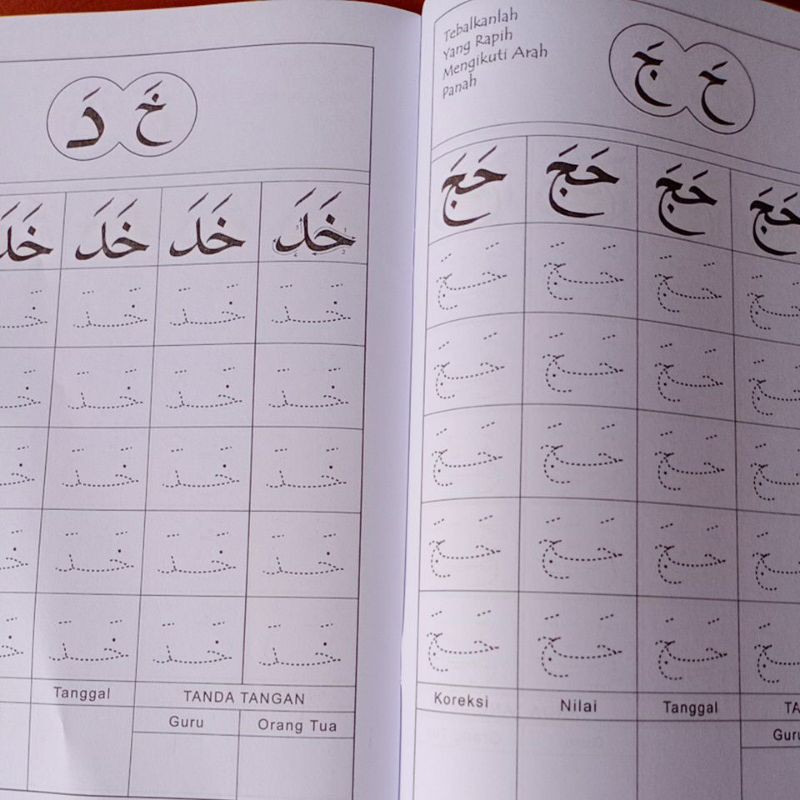 خَ دَ
خَدَ خَدَ خَدَ خَدَ
خَدَ خَدَ خَدَ
خَدَ خَدَ خَدَ
خَدَ خَدَ خَدَ
خَدَ خَدَ خَدَ
خَدَ خَدَ خَدَ
Tanggal TANDA TANGAN
Guru Orang Tua
Tebalkanlah
Yang Rapih
Mengikuti Arah
Panah
حَ جَ
حَجَ حَجَ حَجَ حَجَ
حَجَ حَجَ حَجَ
حَجَ حَجَ حَجَ
حَجَ حَجَ حَجَ
حَجَ حَجَ حَجَ
حَجَ حَجَ حَجَ
Koreksi Nilai Tanggal
Guru